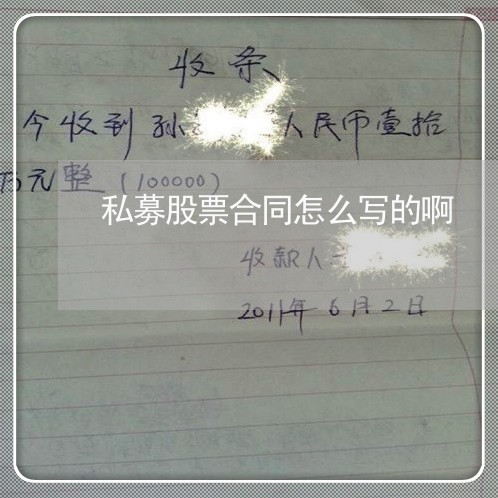 收条
今收到孙 人民币壹拾
万元整(100000)
私募股票合同怎么写的啊
收款人
2011年6月2日